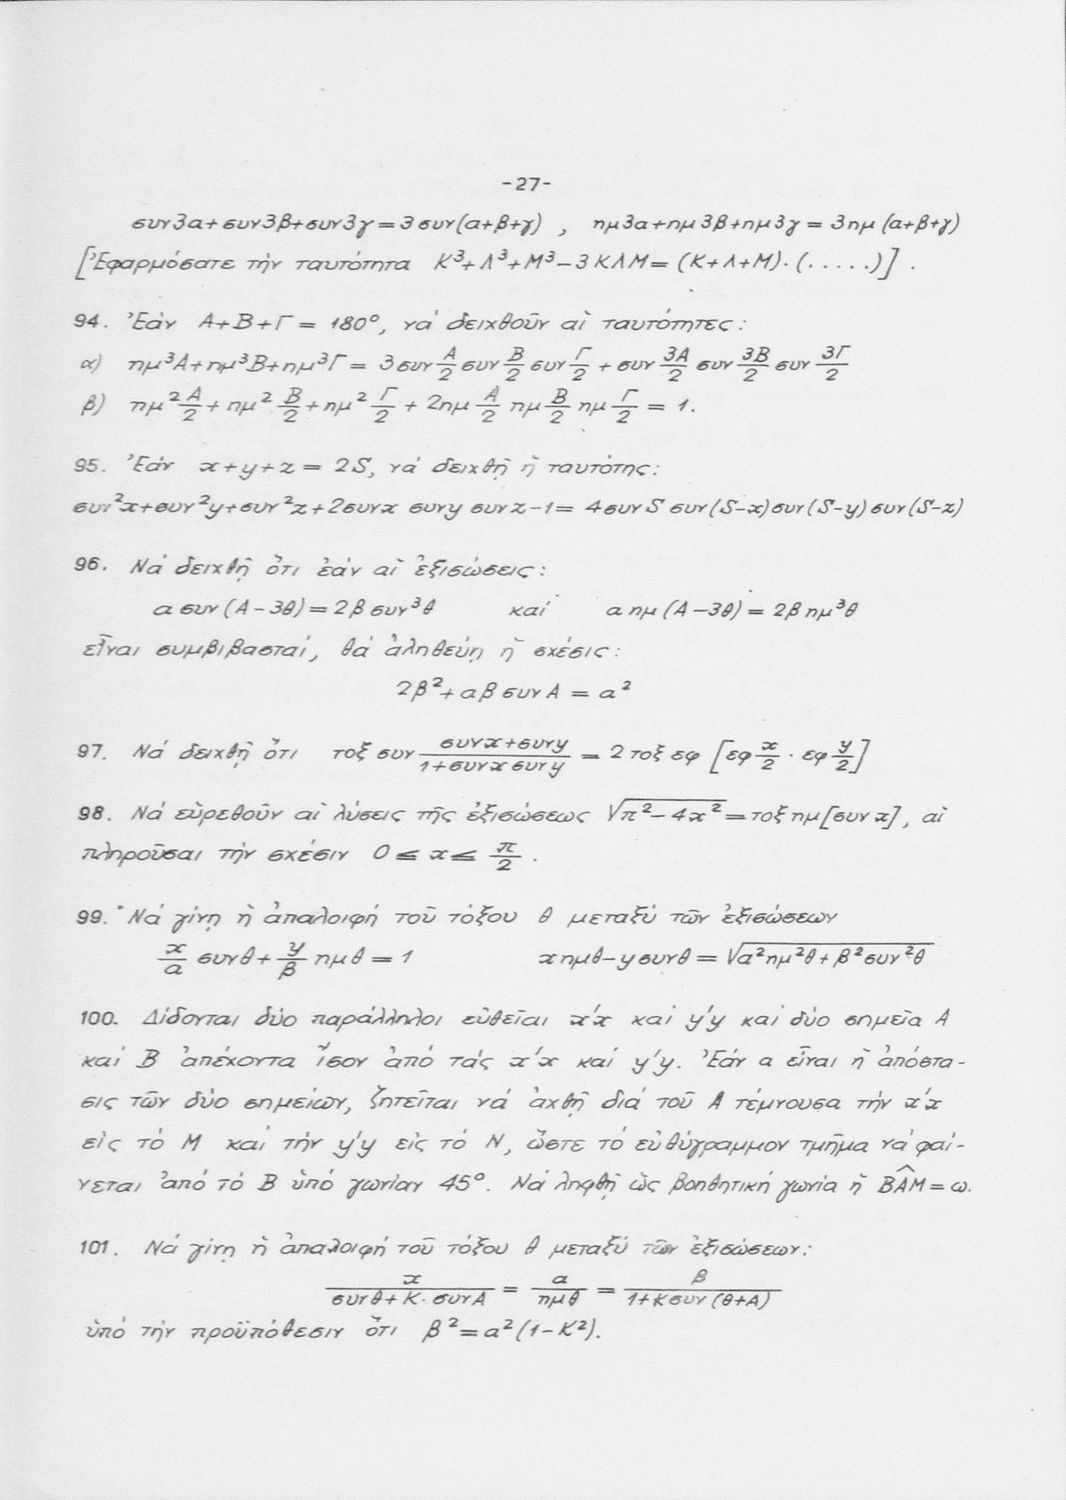 -27-
συν3α+συν3β+συν3γ=3συν(α+β+γ) , ημ3α+ημ3β+ημ3γ=3ημ(α+β+γ)
[Ἐφαρμόσατε τήν ταυτότητα Κ³+Λ³+Μ³-3ΚΛΜ=(Κ+Λ+Μ)·(.....)] .
94. Ἐάν Α+Β+Γ=180°, νά δειχθοῦν αἱ ταυτότητες:
α) ημ³Α+ημ³Β+ημ³Γ= 3συν Α/2 συν Β/2 συν Γ/2 + συν 3Α/2 συν 3Β/2 συν 3Γ/2
β) ημ² Α/2 + ημ² Β/2 + ημ² Γ/2 + 2ημ Α/2 ημ Β/2 ημ Γ/2 = 1.
95. Ἐάν x+y+z=2S, νά δειχθῇ ἡ ταυτότης:
συν²x+συν²y+συν²z+2συνx συνy συνz-1= 4συνS συν(S-x)συν(S-y)συν(S-z)
96. Νά δειχθῇ ὅτι ἐάν αἱ ἐξισώσεις:
α συν(Α-3θ)=2β συν³θ καί α ημ(Α-3θ)=2βημ³θ
εἶναι συμβιβασταί, θά ἀληθεύῃ ἡ σχέσις:
2β²+αβσυνΑ=α²
97. Νά δειχθῇ ὅτι τοξ συν (συνx+συνy)/(1+συνx συνy) = 2 τοξ εφ [εφ x/2 · εφ y/2]
98. Νά εὑρεθοῦν αἱ λύσεις τῆς ἐξισώσεως √(π²-4x²)=τοξ ημ[συνx], αἱ
πληροῦσαι τήν σχέσιν 0≤x≤ π/2 .
99. Νά γίνῃ ἡ ἀπαλοιφή τοῦ τόξου θ μεταξύ τῶν ἐξισώσεων
x/α συνθ+ y/β ημθ=1 xημθ-yσυνθ=√(α²ημ²θ+β²συν²θ)
100. Δίδονται δύο παράλληλοι εὐθεῖαι x΄x καί y΄y καί δύο σημεῖα Α
καί Β ἀπέχοντα ἴσον ἀπό τάς x΄x καί y΄y. Ἐάν α εἶναι ἡ ἀπόστα-
σις τῶν δύο σημείων, ζητεῖται νά ἀχθῇ διά τοῦ Α τέμνουσα τήν x΄x
εἰς τό Μ καί τήν y΄y εἰς τό Ν, ὥστε τό εὐθύγραμμον τμῆμα νά φαί-
νεται ἀπό τό Β ὑπό γωνίαν 45°. Νά ληφθῇ ὡς βοηθητική γωνία ἡ ΒÂΜ=ω.
101. Νά γίνῃ ἡ ἀπαλοιφή τοῦ τόξου θ μεταξύ τῶν ἐξισώσεων:
x/(συνθ+Κ·συνΑ) = α/ημθ = β/(1+Κσυν(θ+Α))
ὑπό τήν προϋπόθεσιν ὅτι β²=α²(1-Κ²).